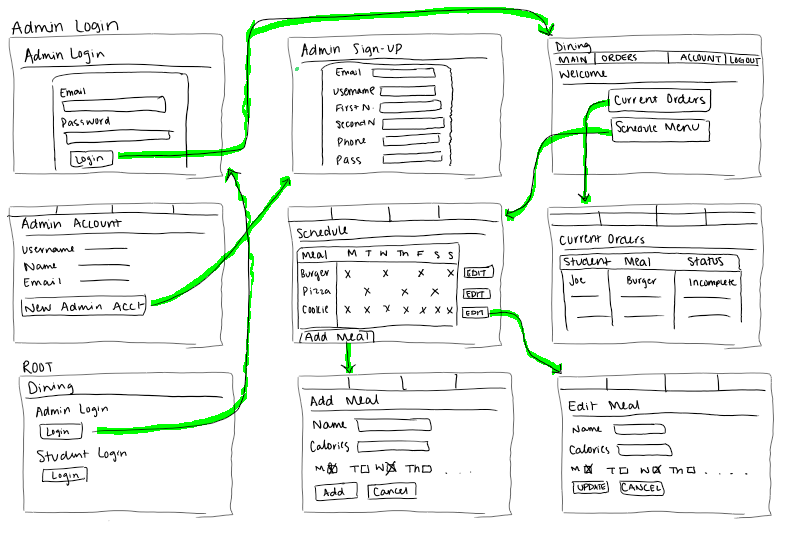 Admin Login
Admin Login
Email
Password
Login
Admin Sign-up
Email
Username
First N.
Second N
Phone
Pass
Dining
MAIN ORDERS ACCOUNT LOGOUT
Welcome
Current Orders
Schedule Menu
Admin Account
Username
Name
Email
New Admin Acct
Schedule
Meal M T W Th F S S
Burger X X X X EDIT
Pizza X X X EDIT
Cookie X X X X X X X EDIT
Add Meal
Current Orders
Student Meal Status
Joe Burger Incomplete
ROOT
Dining
Admin Login
Login
Student Login
Login
Add Meal
Name
Calories
M T W Th . . . .
Add Cancel
Edit Meal
Name
Calories
M T W Th . . . . .
UPDATE CANCEL